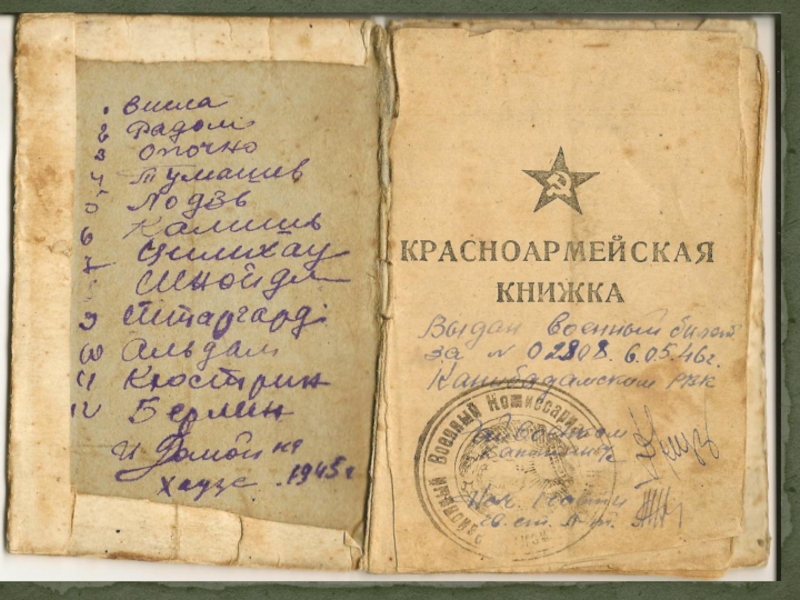 1 Висла
2 Радом
3 Опочно
4 Тумашев
5 Лодзь
6 Калишь
7 Цилихау
Шнойдм
9 Штаргард
10 Альдам
11 Кюстрин
12 Берлин
и домой на
хаузе. 1945 г
КРАСНОАРМЕЙСКАЯ
КНИЖКА
Выдан военный билет
за № 02808. 6.05.46 г.
Канибадамском РВК
Военный Комиссариат
Капитан
Нач. части